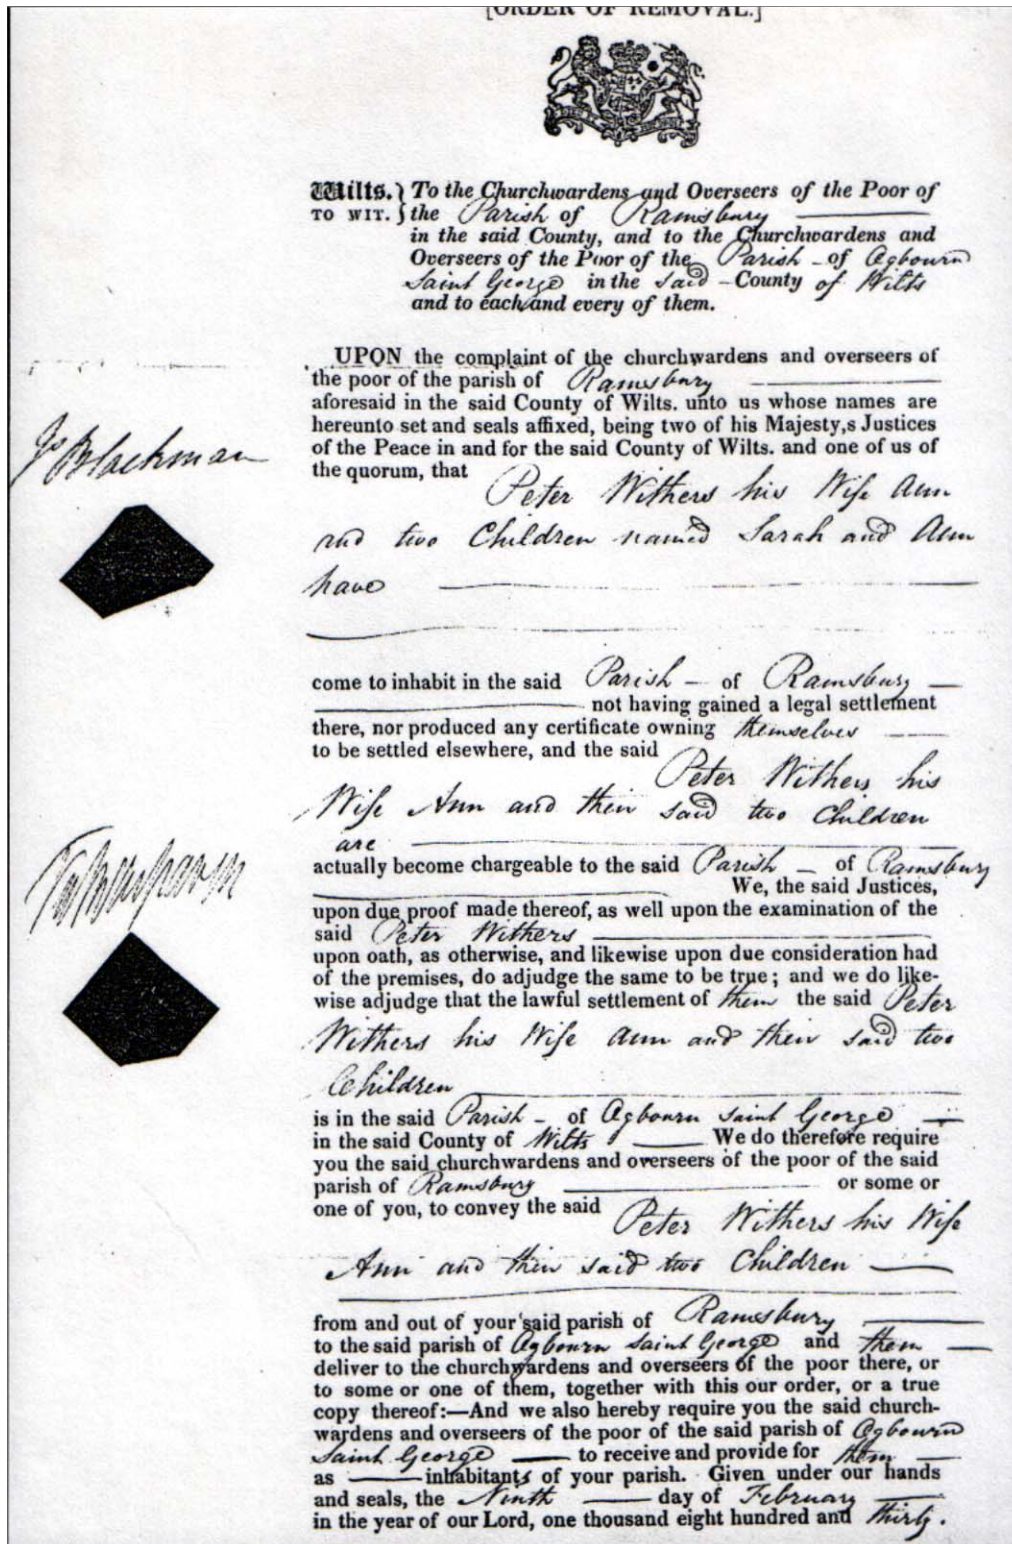 [ORDER OF REMOVAL.]
Wilts. } To the Churchwardens and Overseers of the Poor of
TO WIT. } the Parish of Ramsbury
in the said County, and to the Churchwardens and
Overseers of the Poor of the Parish - of Ogbourn
Saint George in the said - County of Wilts
and to each and every of them.
UPON the complaint of the churchwardens and overseers of
the poor of the parish of Ramsbury
aforesaid in the said County of Wilts. unto us whose names are
hereunto set and seals affixed, being two of his Majesty,s Justices
of the Peace in and for the said County of Wilts. and one of us of
the quorum, that
Blackman
Peter Withers his Wife Ann
and two Children named Sarah and Ann
have
come to inhabit in the said Parish - of Ramsbury
not having gained a legal settlement
there, nor produced any certificate owning themselves
to be settled elsewhere, and the said
Peter Withers his
Wife Ann and their said two Children
are
actually become chargeable to the said Parish - of Ramsbury
We, the said Justices,
upon due proof made thereof, as well upon the examination of the
said Peter Withers
upon oath, as otherwise, and likewise upon due consideration had
of the premises, do adjudge the same to be true; and we do like-
wise adjudge that the lawful settlement of them the said Peter
Withers his Wife Ann and their said two
Children
is in the said Parish - of Ogbourn Saint George
in the said County of Wilts We do therefore require
you the said churchwardens and overseers of the poor of the said
parish of Ramsbury or some or
one of you, to convey the said
Peter Withers his Wife
Ann and their said two Children
from and out of your said parish of Ramsbury
to the said parish of Ogbourn Saint George and them
deliver to the churchwardens and overseers of the poor there, or
to some or one of them, together with this our order, or a true
copy thereof:—And we also hereby require you the said church-
wardens and overseers of the poor of the said parish of Ogbourn
Saint George to receive and provide for them
as inhabitants of your parish. Given under our hands
and seals, the Ninth day of February
in the year of our Lord, one thousand eight hundred and thirty.